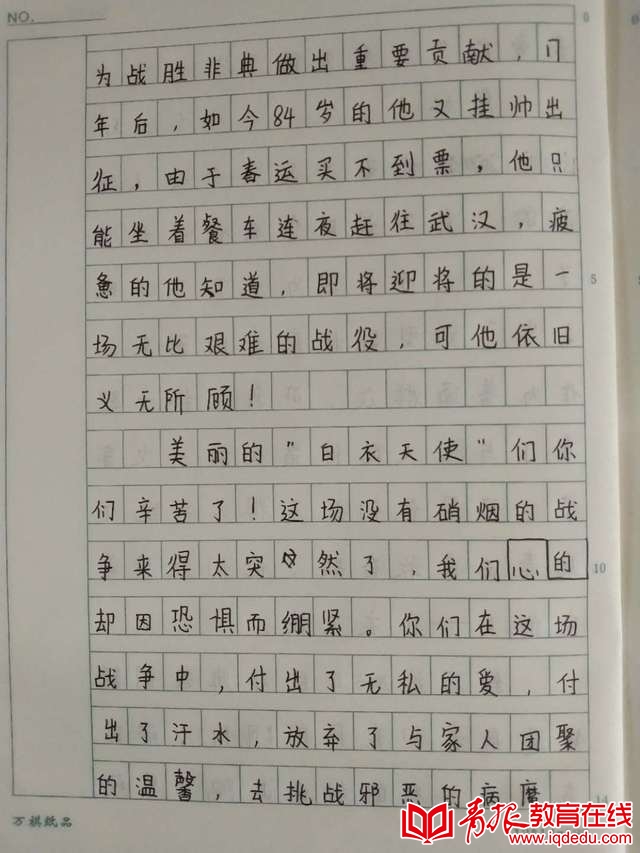 NO.
为战胜非典做出重要贡献，17
年后，如今84岁的他又挂帅出
征，由于春运买不到票，他只
能坐着餐车连夜赶往武汉，疲
惫的他知道，即将迎将的是一
场无比艰难的战役，可他依旧
义无所顾！
美丽的"白衣天使"们你
们辛苦了！这场没有硝烟的战
争来得太突然了，我们心的
却因恐惧而绷紧。你们在这场
战争中，付出了无私的爱，付
出了汗水，放弃了与家人团聚
的温馨，去挑战邪恶的病魔
0
5
10
万棋纸品
青报教育在线
www.iqdedu.com